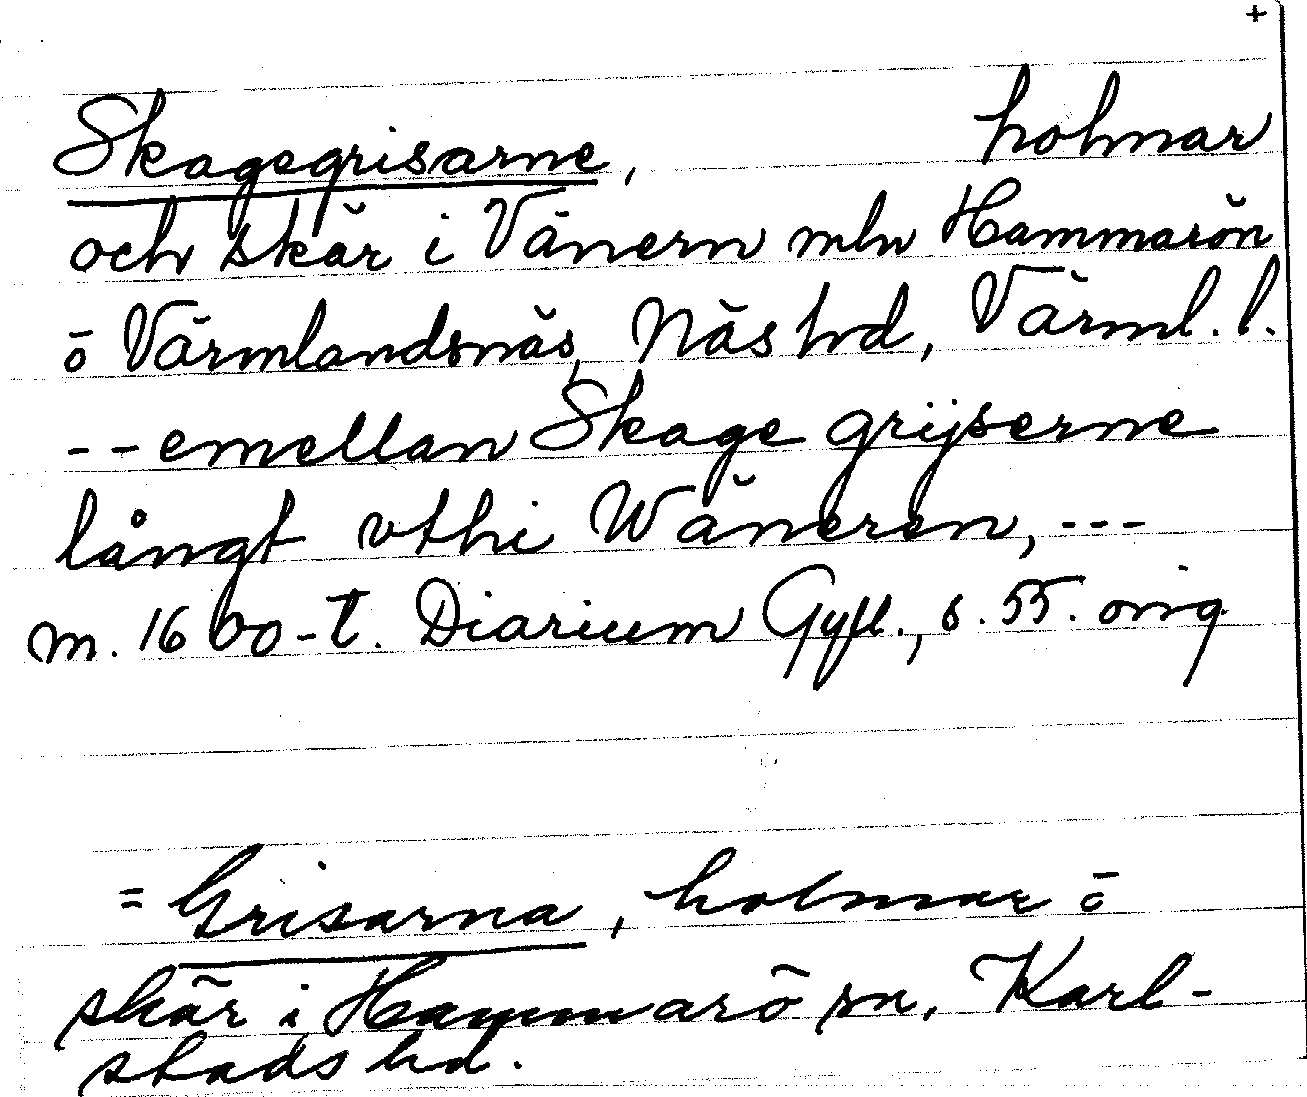 +
Skagegrisarne, holmar
och skär i Vänern mln Hammarön
o Värmlandsnäs, Näs hd, Värml. l.
-- emellan Skage grijserne
långt vthi Wäneren, ---
m. 1600-t. Diarium Gyll., s. 55. orig
= Grisarna, holmar o
skär i Hammarö sn, Karl-
stads hd.